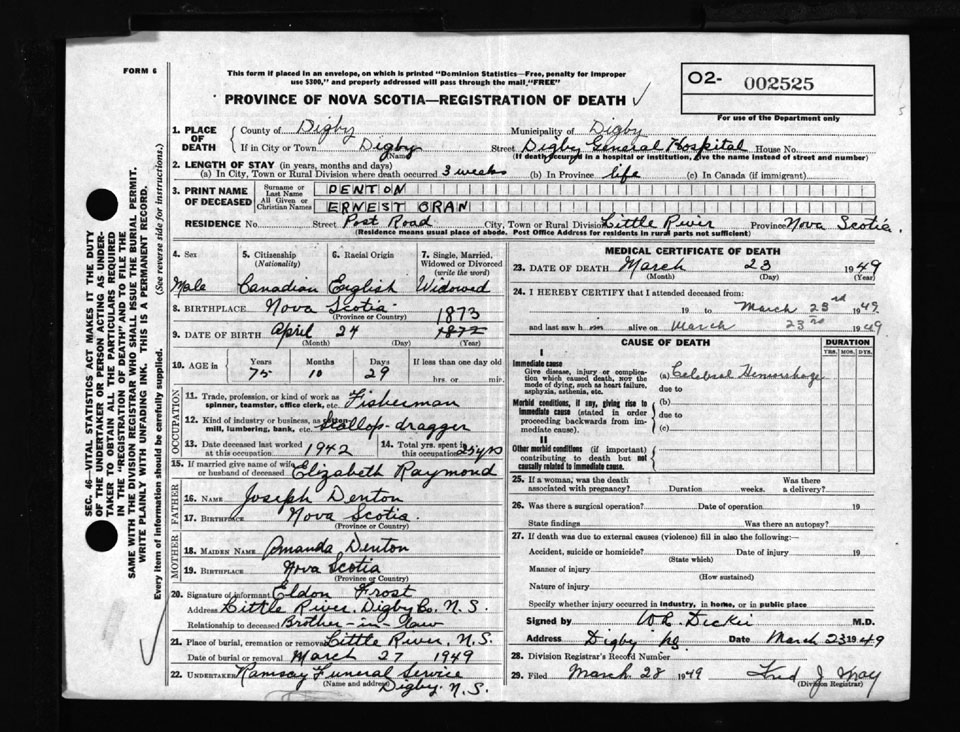 FORM 6
This form if placed in an envelope, on which is printed "Dominion Statistics—Free, penalty for improper
use $300," and properly addressed will pass through the mail "FREE"
O2- 002525
For use of the Department only
PROVINCE OF NOVA SCOTIA—REGISTRATION OF DEATH
1. PLACE OF DEATH
County of Digby Municipality of Digby
If in City or Town Digby Street Digby General Hospital House No.
(Name) (If death occurred in a hospital or institution, give the name instead of street and number)
2. LENGTH OF STAY (in years, months and days)
(a) In City, Town or Rural Division where death occurred 3 weeks (b) In Province life (c) In Canada (if immigrant)
3. PRINT NAME OF DECEASED
Surname or Last Name DENTON
All Given or Christian Names ERNEST ORAN
RESIDENCE No. Street Post Road City, Town or Rural Division Little River Province Nova Scotia.
(Residence means usual place of abode. Post Office Address for residents in rural parts not sufficient)
4. Sex 5. Citizenship (Nationality) 6. Racial Origin 7. Single, Married, Widowed or Divorced (write the word)
Male Canadian English Widowed
8. BIRTHPLACE Nova Scotia
(Province or Country)
1873
9. DATE OF BIRTH April 24 1872
(Month) (Day) (Year)
10. AGE in Years Months Days If less than one day old
75 10 29 hrs. or min.
OCCUPATION
11. Trade, profession, or kind of work as spinner, teamster, office clerk, etc. Fisherman
12. Kind of industry or business, as cotton mill, lumbering, bank, etc. Scallop-dragger
13. Date deceased last worked at this occupation 1942 14. Total yrs. spent in this occupation 25 yrs
15. If married give name of wife or husband of deceased Elizabeth Raymond
FATHER
16. NAME Joseph Denton
17. BIRTHPLACE Nova Scotia.
(Province or Country)
MOTHER
18. MAIDEN NAME Amanda Denton
19. BIRTHPLACE Nova Scotia
(Province or Country)
20. Signature of informant Eldon Frost
Address Little River, Digby Co. N.S.
Relationship to deceased Brother-in-law
21. Place of burial, cremation or removal Little River, N.S.
Date of burial or removal March 27 1949
22. UNDERTAKER Ramsay Funeral Service
(Name and address) Digby. N.S.
MEDICAL CERTIFICATE OF DEATH
23. DATE OF DEATH March 23 1949
(Month) (Day) (Year)
24. I HEREBY CERTIFY that I attended deceased from:
19 to March 23rd 1949
and last saw h alive on March 23rd 1949
CAUSE OF DEATH DURATION
YRS. MOS. DYS.
I
Immediate cause
Give disease, injury or complication which caused death, NOT the mode of dying, such as heart failure, asphyxia, asthenia, etc.
(a) Celebral Hemorrhage
due to
Morbid conditions, if any, giving rise to immediate cause (stated in order proceeding backwards from immediate cause).
(b)
due to
(c)
II
Other morbid conditions (if important) contributing to death but not causally related to immediate cause.
25. If a woman, was the death associated with pregnancy? Duration weeks. Was there a delivery?
26. Was there a surgical operation? Date of operation 19
State findings Was there an autopsy?
27. If death was due to external causes (violence) fill in also the following:
Accident, suicide or homicide? Date of injury 19
(State which)
Manner of injury
(How sustained)
Nature of injury
Specify whether injury occurred in industry, in home, or in public place
Signed by W.R. Dickie M.D.
Address Digby NS Date March 23 1949
28. Division Registrar's Record Number
29. Filed March 28 1949 Fred J.
(Division Registrar)
SEC. 46—VITAL STATISTICS ACT MAKES IT THE DUTY
OF THE UNDERTAKER OR PERSON ACTING AS UNDER-
TAKER TO OBTAIN ALL THE PARTICULARS REQUIRED
IN THE "REGISTRATION OF DEATH" AND TO FILE THE
SAME WITH THE DIVISION REGISTRAR WHO SHALL ISSUE THE BURIAL PERMIT.
WRITE PLAINLY WITH UNFADING INK. THIS IS A PERMANENT RECORD.
Every item of information should be carefully supplied. (See reverse side for instructions.)